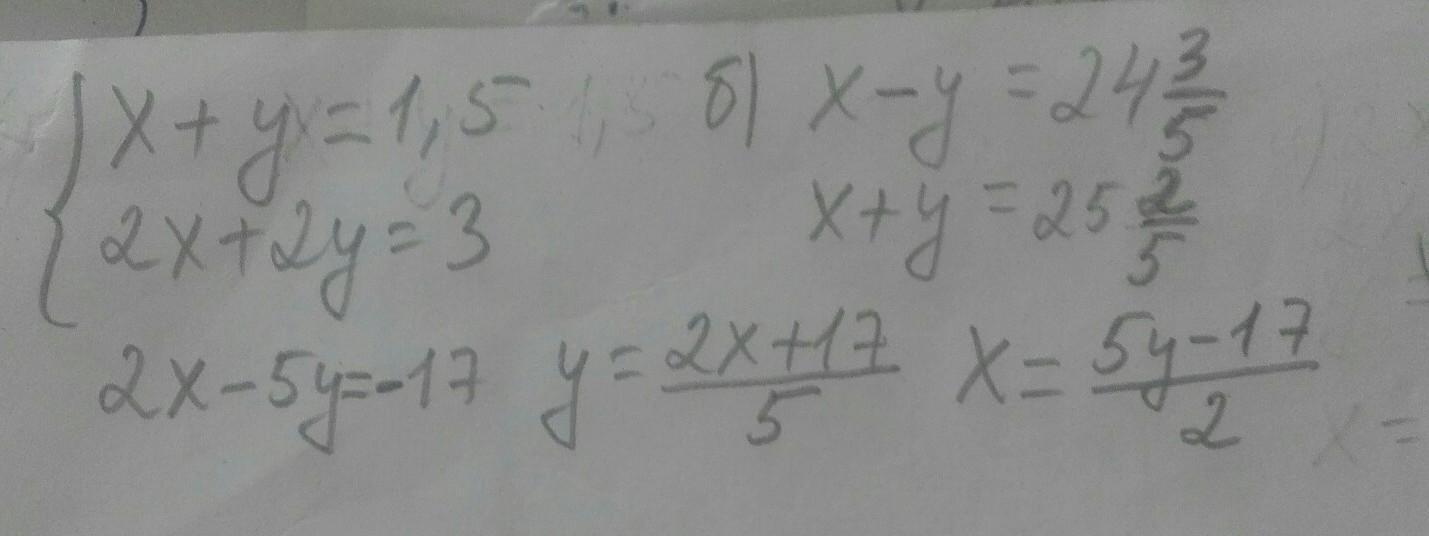 x + y = 1,5 б) x - y = 24 3/5
2x + 2y = 3 x + y = 25 2/5
2x - 5y = -17 y = (2x + 17)/5 x = (5y - 17)/2